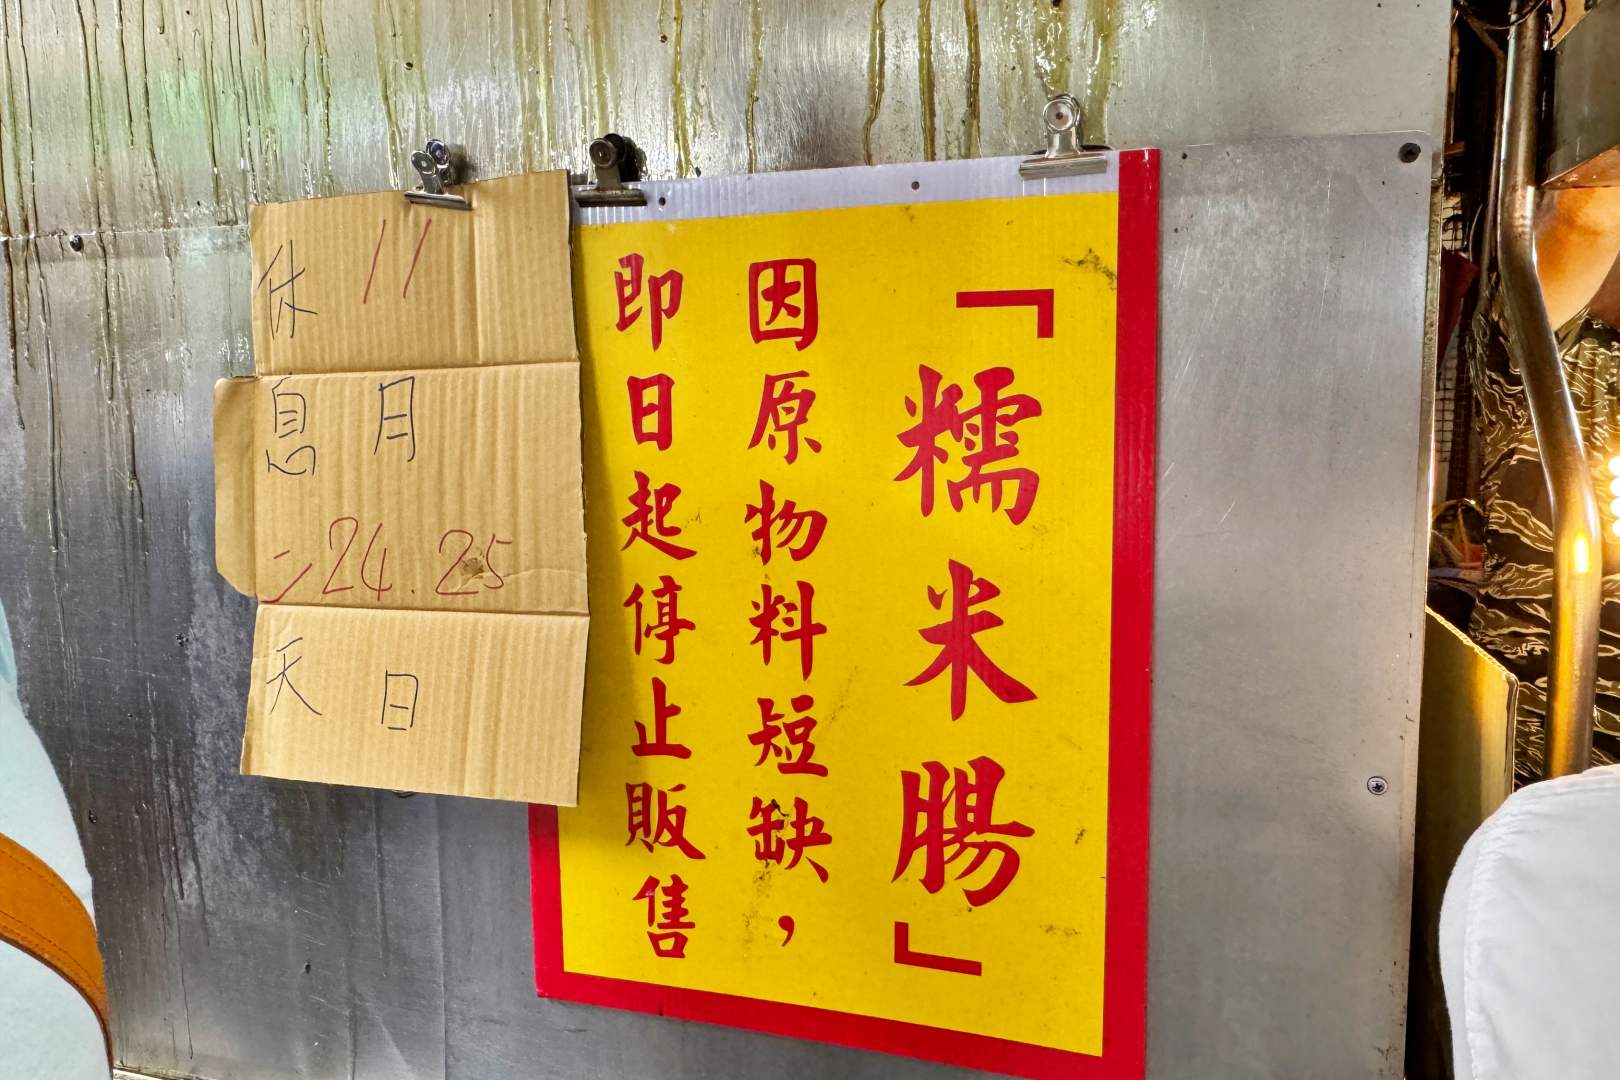 「糯米腸」
因原物料短缺，
即日起停止販售
11月24.25日
休息二天